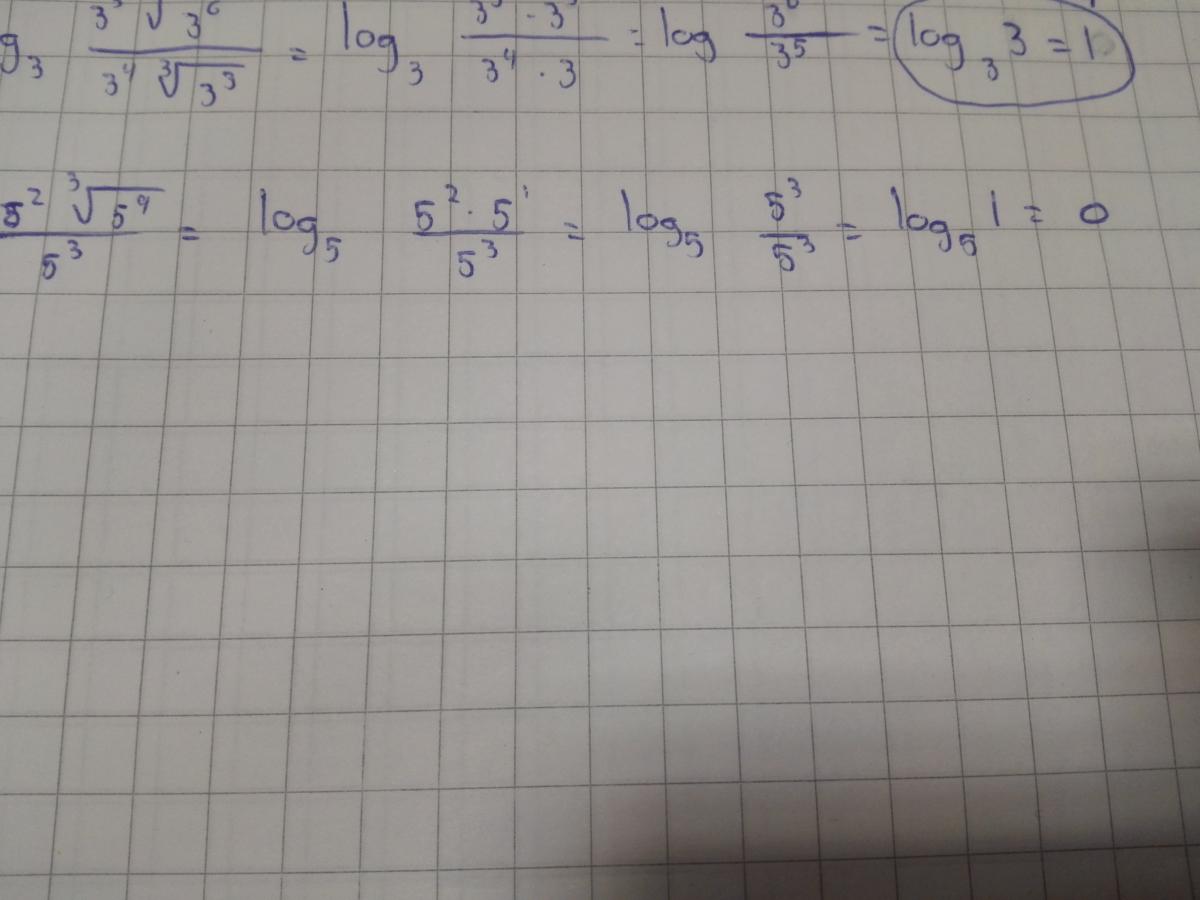 g₃ 3³ √3⁶ / 3⁴ ∛3³ = log₃ 3³ · 3³ / 3⁴ · 3 = log 3⁶ / 3⁵ = log₃ 3 = 1
5² ∛5⁹ / 5³ = log₅ 5² · 5¹ / 5³ = log₅ 5³ / 5³ = log₅ 1 = 0